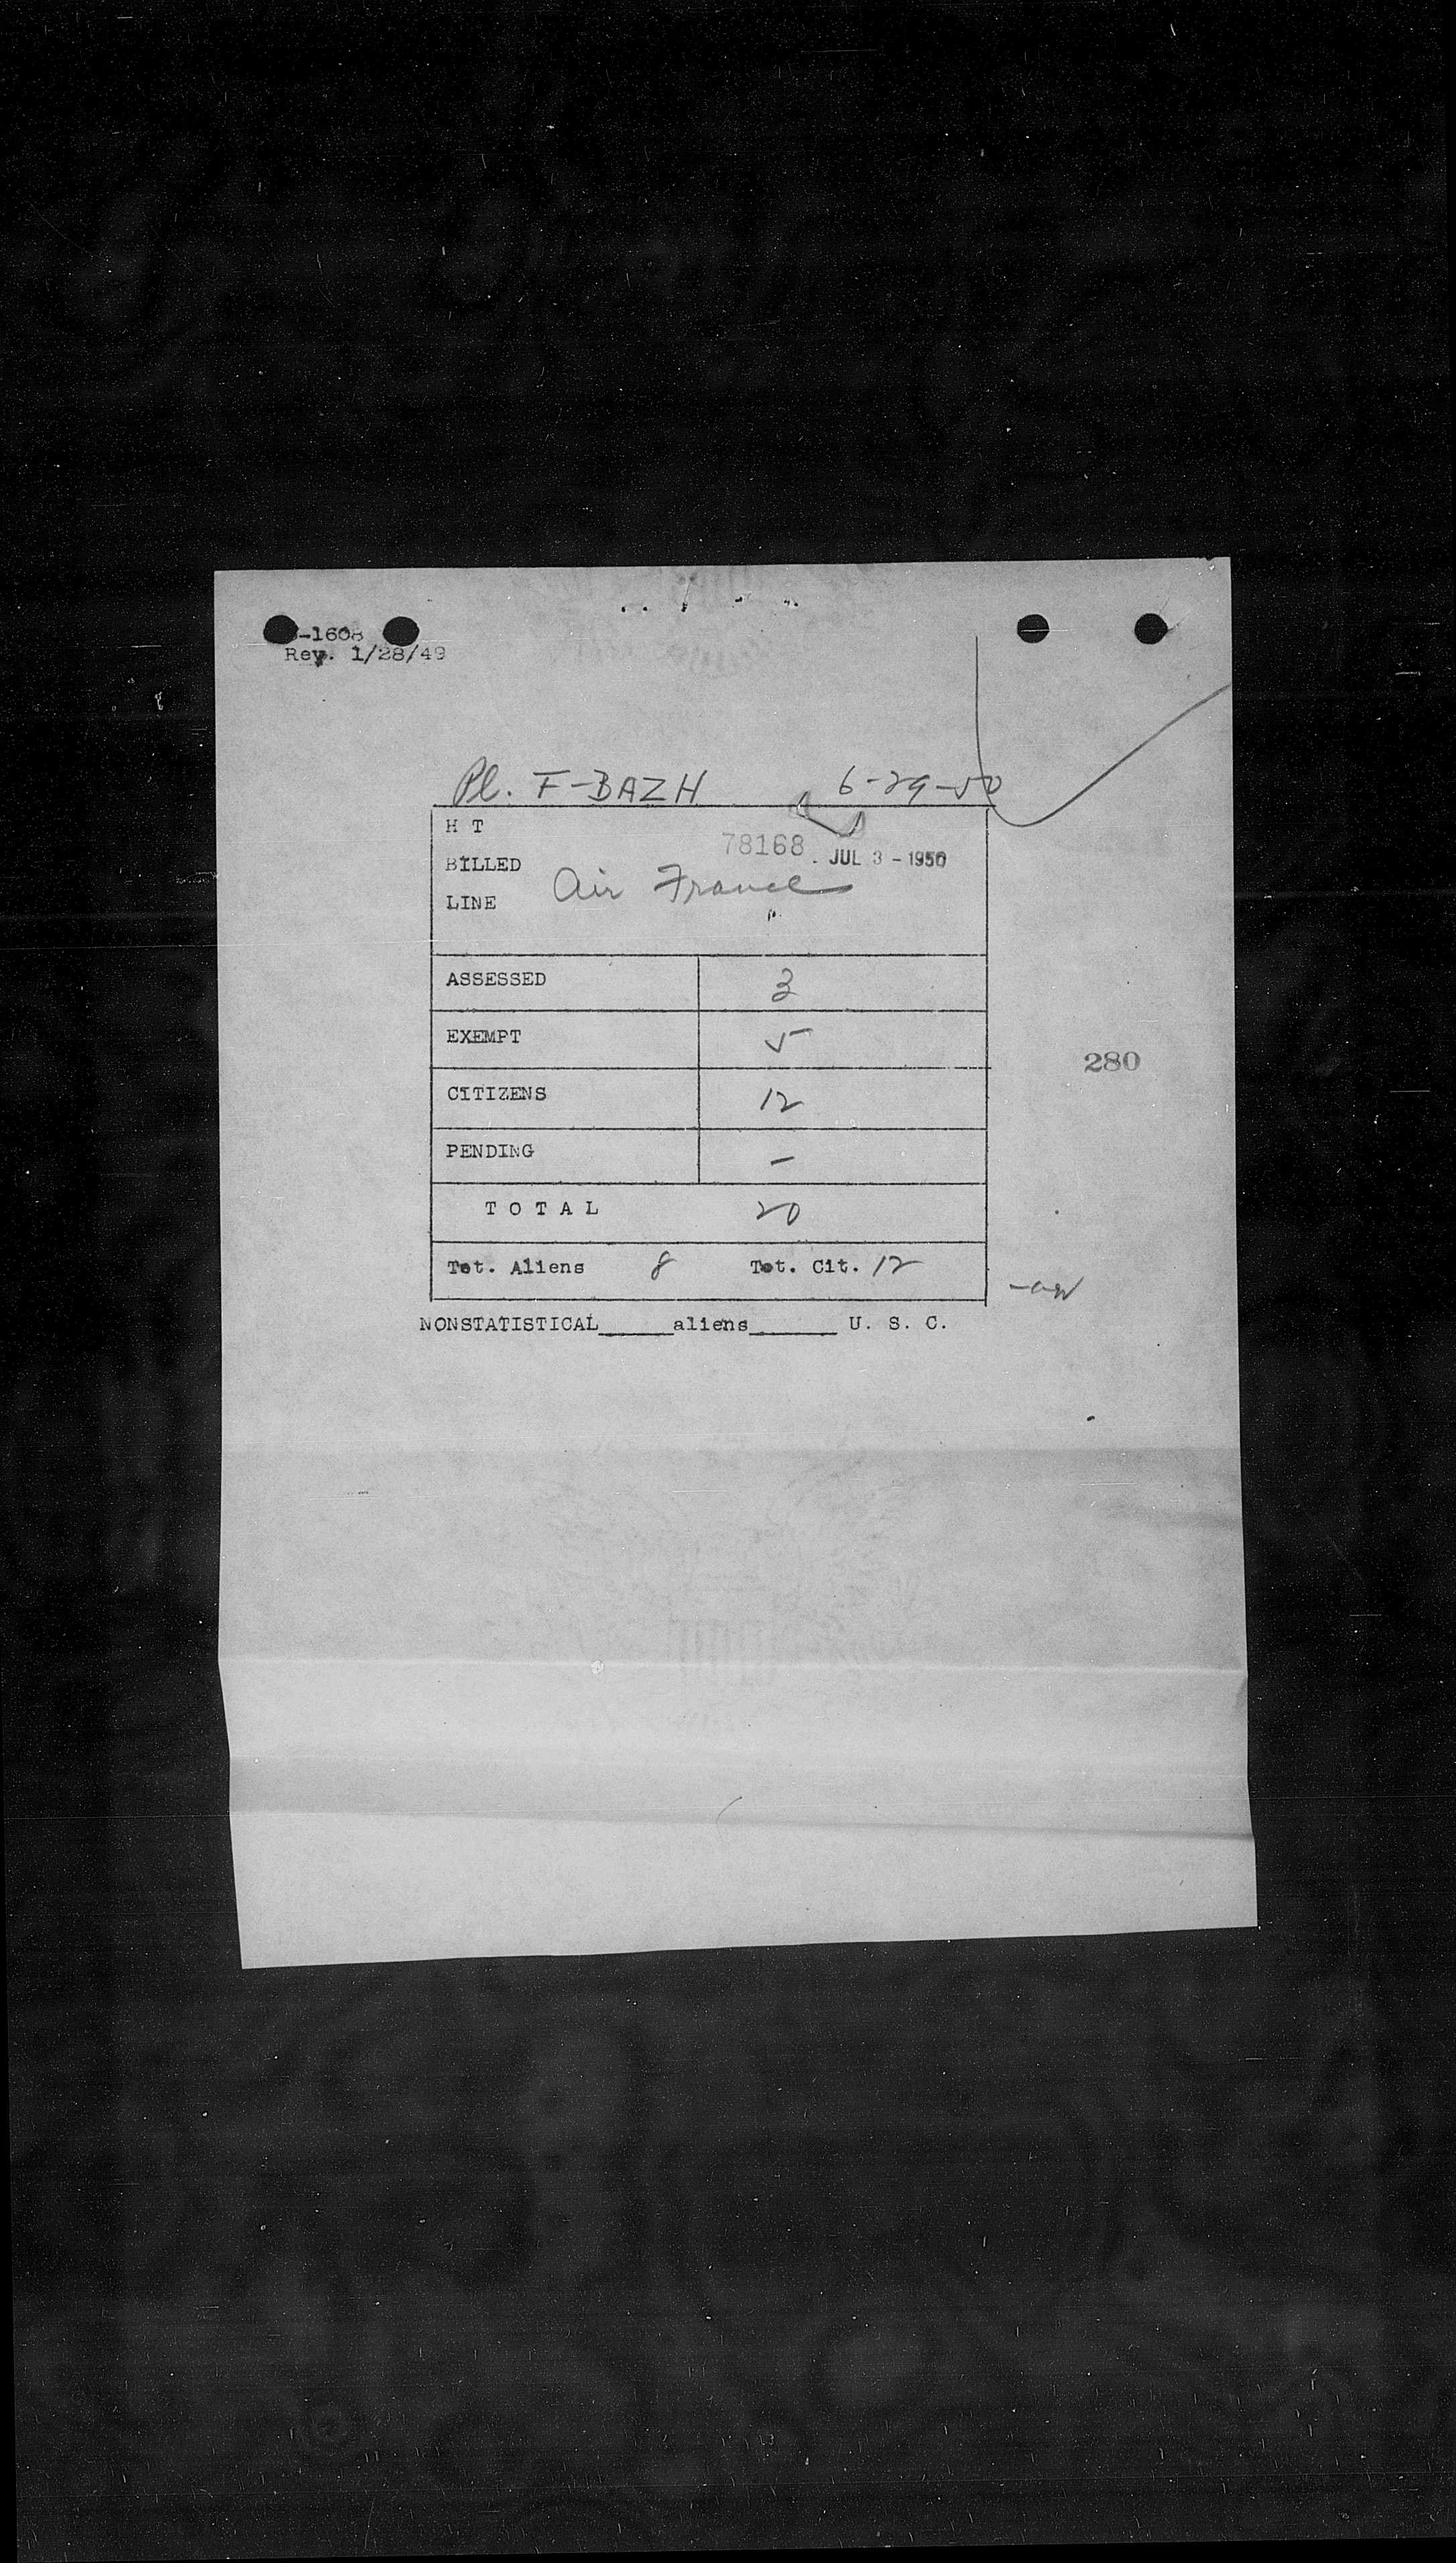 -1608
Rev. 1/28/49
Pl. F-BAZH 6-29-50
H T
78168 JUL 3 - 1950
BILLED
Air France
LINE
ASSESSED 3
EXEMPT 5
280
CITIZENS 12
PENDING -
T O T A L 20
Tot. Aliens 8 Tot. Cit. 12
NONSTATISTICAL______aliens_______ U. S. C.